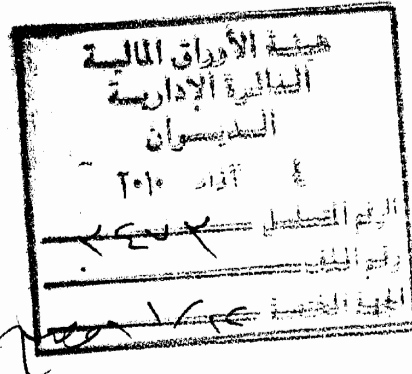 هيئة الأوراق المالية
الدائرة الإدارية
الديوان
٤ آذار ٢٠١٠
الرقم المتسلسل
رقم الملف
الجهة المختصة